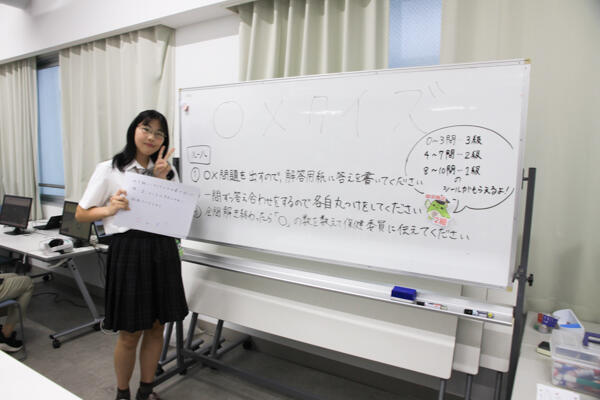 ○×クイズ
ルール
① ○×問題を出すので、解答用紙に答えを書いてください
一問ずつ答え合わせをするので各自丸つけをしてください
③ 全問解き終わったら「○」の数を数えて保健委員に伝えてください
0〜3問…3級
4〜7問…2級
8〜10問…1級
の
シールがもらえるよ!